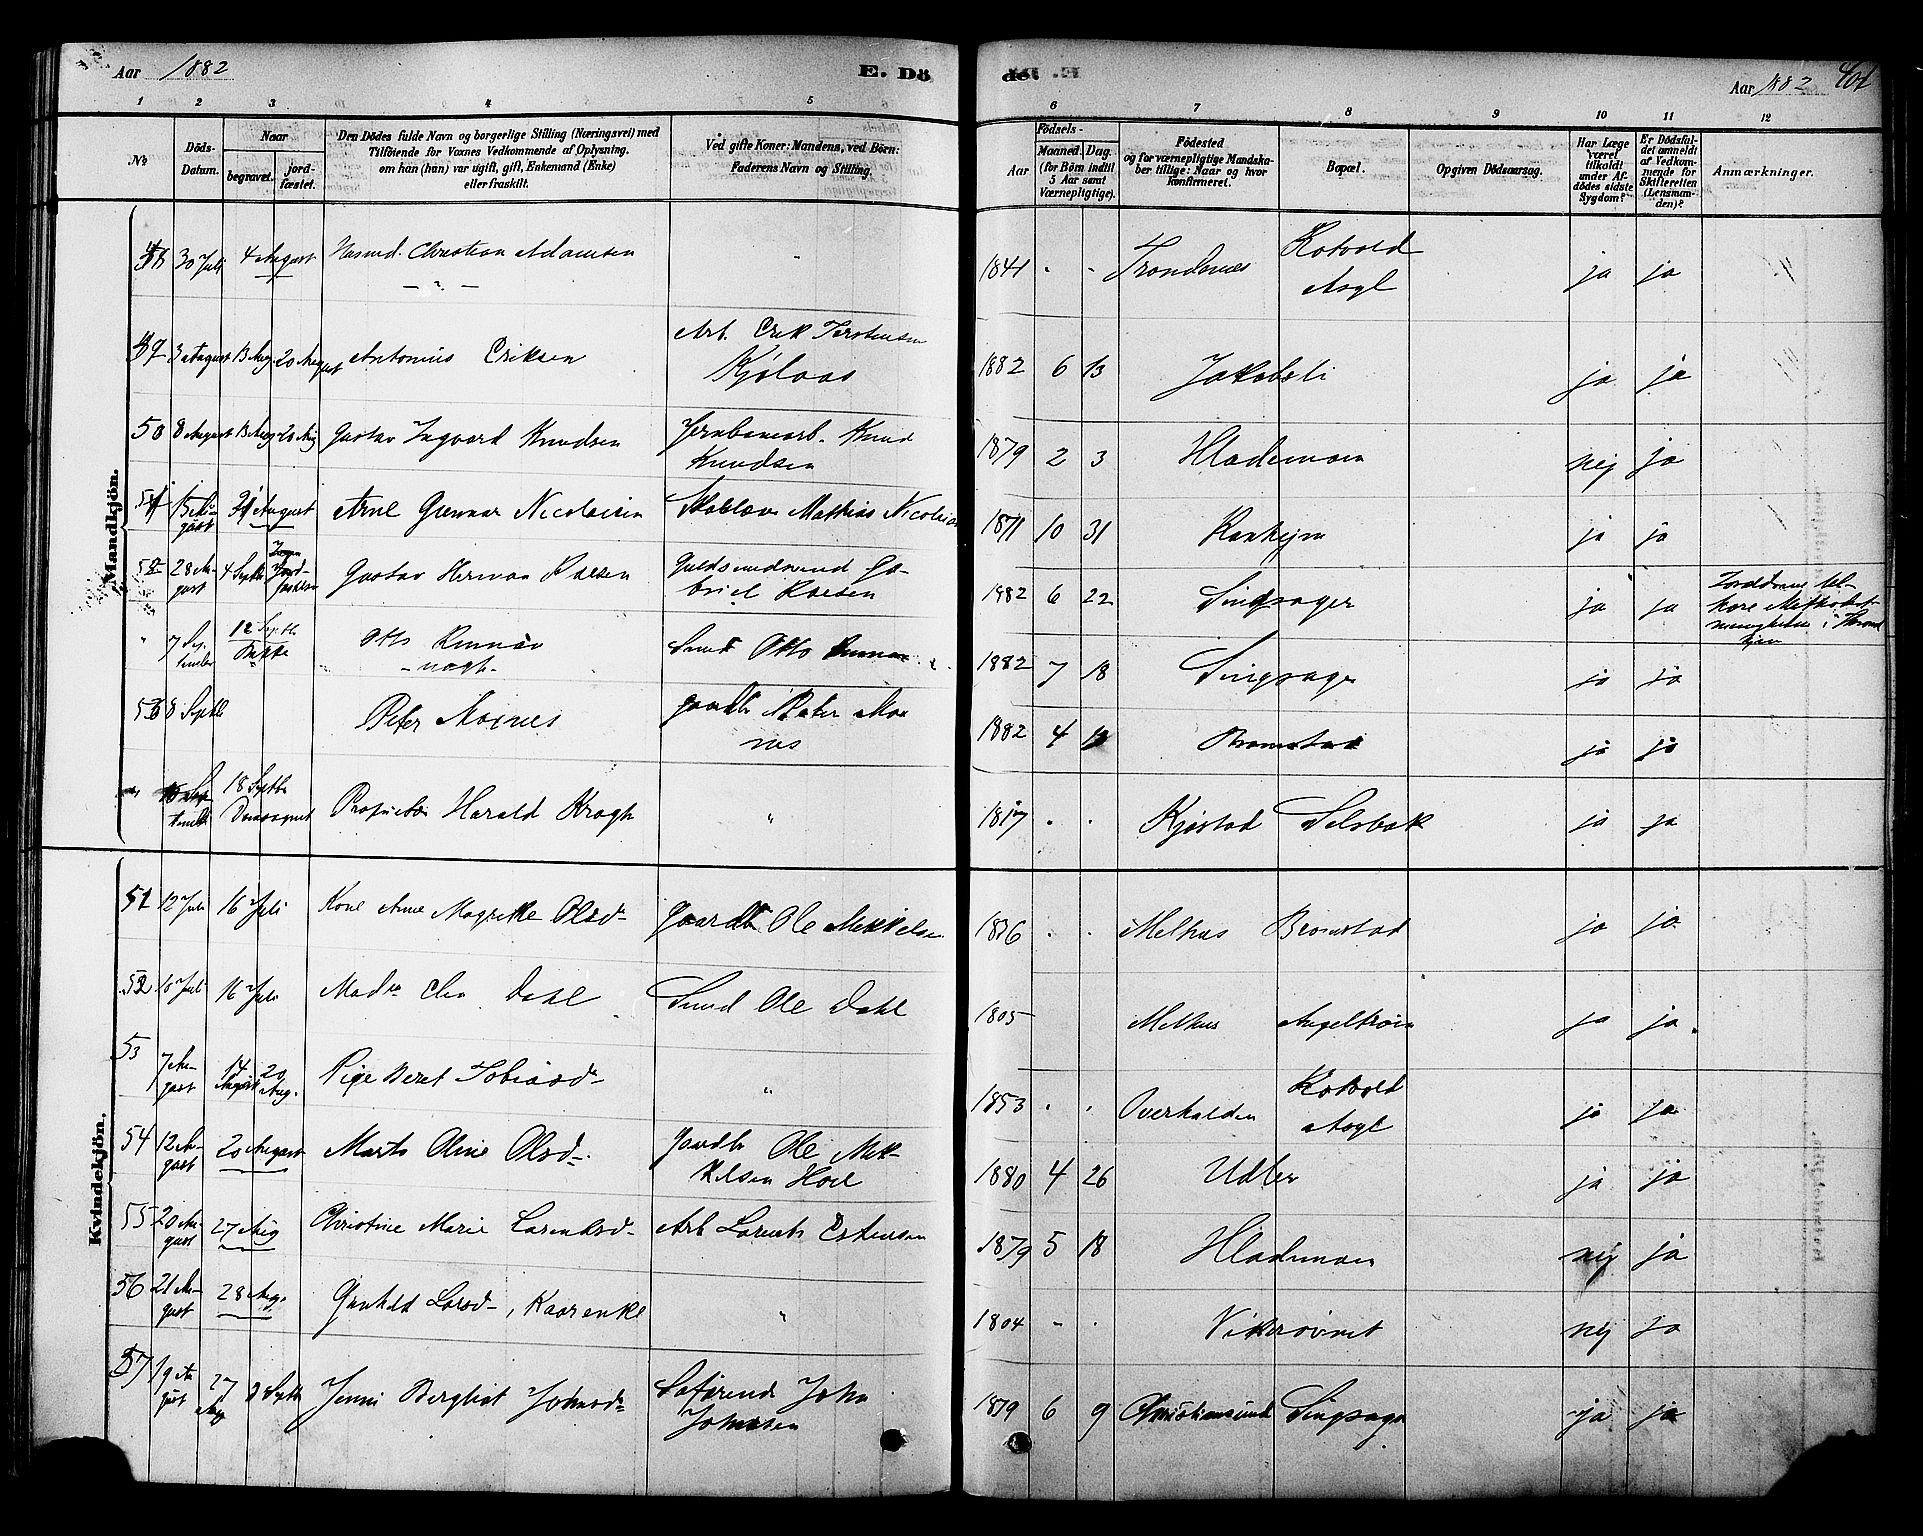 Aar 1882
E. Dö
de.
Aar 1882
401
1 2 3 4 5 6 7 8 9 10 11 12
No.
Döds-
Datum.
Naar
begravet.
jord-
fæstet.
Den Dödes fulde Navn og borgerlige Stilling (Næringsvei) med
Tilföiende for Voxnes Vedkommende af Oplysning,
om han (hun) var ugift, gift, Enkemand (Enke)
eller fraskilt.
Ved gifte Koner: Mandens, ved Börn:
Faderens Navn og Stilling.
Aar
Födsels-
Maaned. Dag.
(for Börn indtil
5 Aar samt
Værnepligtige).
Födested
og for værnepligtige Mandska-
ber tillige: Naar og hvor
konfirmeret.
Bopæl.
Opgiven Dödsaarsag.
Har Læge
været
tilkaldt
under Af-
dødes sidste
Sygdom?
Er Dödsfal-
det anmeldt
af Vedkom-
mende for
Skifteretten
(Lensman-
den)?
Anmærkninger.
Mandkjön.
30 Juli 4 August Husmd. Christian Adamsen 1841 Trondenæs Rotvold
Asyl ja ja
3 August 13 Aug. 20 August Antonius Eriksen Arb. Erik Torstensen 1882 6 13 Jakobsli ja ja
50 8 August 13 Aug 20 Aug Gustav Ingvard Knudsen Jernbanearb. Knud
Knudsen 1879 2 3 Hlademoen nej ja
51 31 August Arne Gunnar Nicolaisen Mathias Nicolaisen 1871 10 31 Ranhejm ja ja
52 28 Au-
gust 4 Septb Gustav Herman Roesen Guldsmedsvend Ga-
briel Roesen 1882 6 22 Singsager ja ja
" 7 Sep
tember 12 Septb. Otto
Smed Otto 1882 7 18 Singsager ja ja
53 8 Septb Peter Moxnes Gaardb Peter Mox
nes 1882 4 ja ja
18 Septb Proprietær Harald Krogh " 1817 Kjøstad Selsbak ja ja
Kvindekjön.
51 12 Juli 16 Juli Kone Ane Magrethe Olsd. Gaardb Ole Mikkelsen 1836 Melhus Bromstad ja ja
52 10 Juli 16 Juli Madm Dahl Smed Ole Dahl 1805 Melhus Angeltrøen ja ja
53 7 Au-
gust 14
August 20
Aug. Pige Beret Tobiasd. " 1853 Overhalden Rotvold
Asyl ja ja
54 12 Au-
gust 20 August Marta Oline Olsd. Gaardb Ole Mik-
kelsen Hoel 1880 4 26 Udler ja ja
55 20 Au-
gust 27 Aug Christine Marie Lorentsd. Arb Lorents Estensen 1879 5 18 Hlademoen nej ja
56 21 Au-
gust 28 Aug. Gunhild Larsd., Kaarenke " 1804 Vikerøvret nej ja
57 19 Au
gust 27
Aug 3 Septb Jenni Bergliot Johnsd. Søfarend John
Johnsen 1879 6 9 Christiansund Singsager ja ja